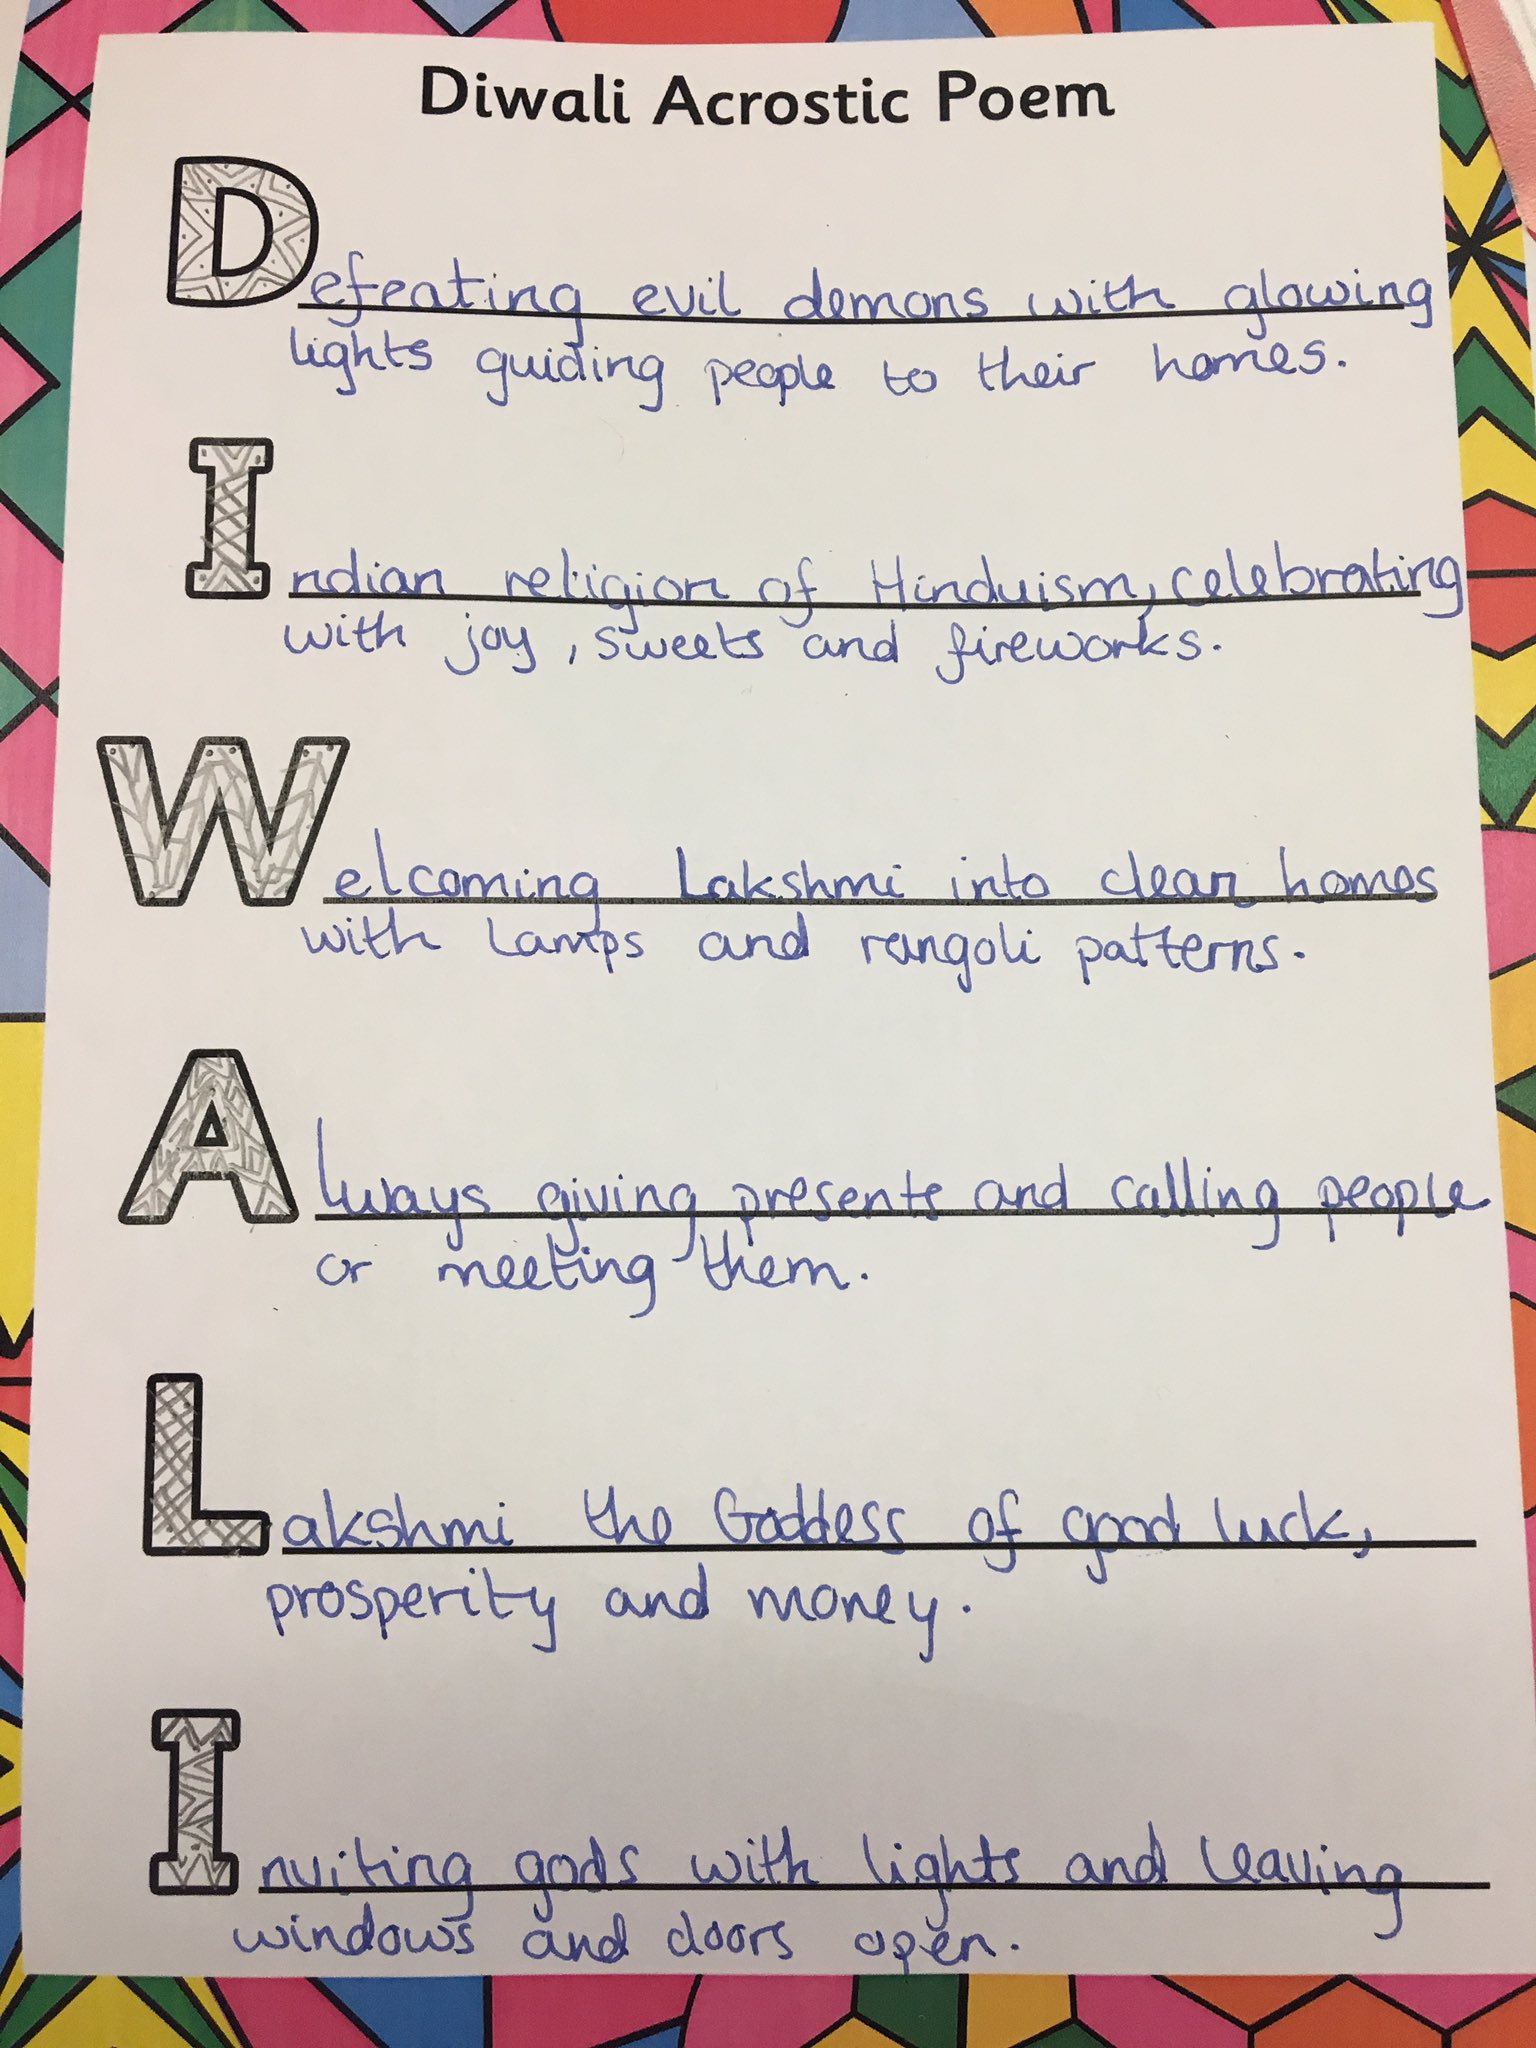 Diwali Acrostic Poem
Defeating evil demons with glowing
lights guiding people to their homes.
Indian religion of Hinduism, celebrating
with joy, sweets and fireworks.
Welcoming Lakshmi into clean homes
with lamps and rangoli patterns.
Always giving presents and calling people
or meeting them.
Lakshmi the Goddess of good luck,
prosperity and money.
Inviting gods with lights and leaving
windows and doors open.